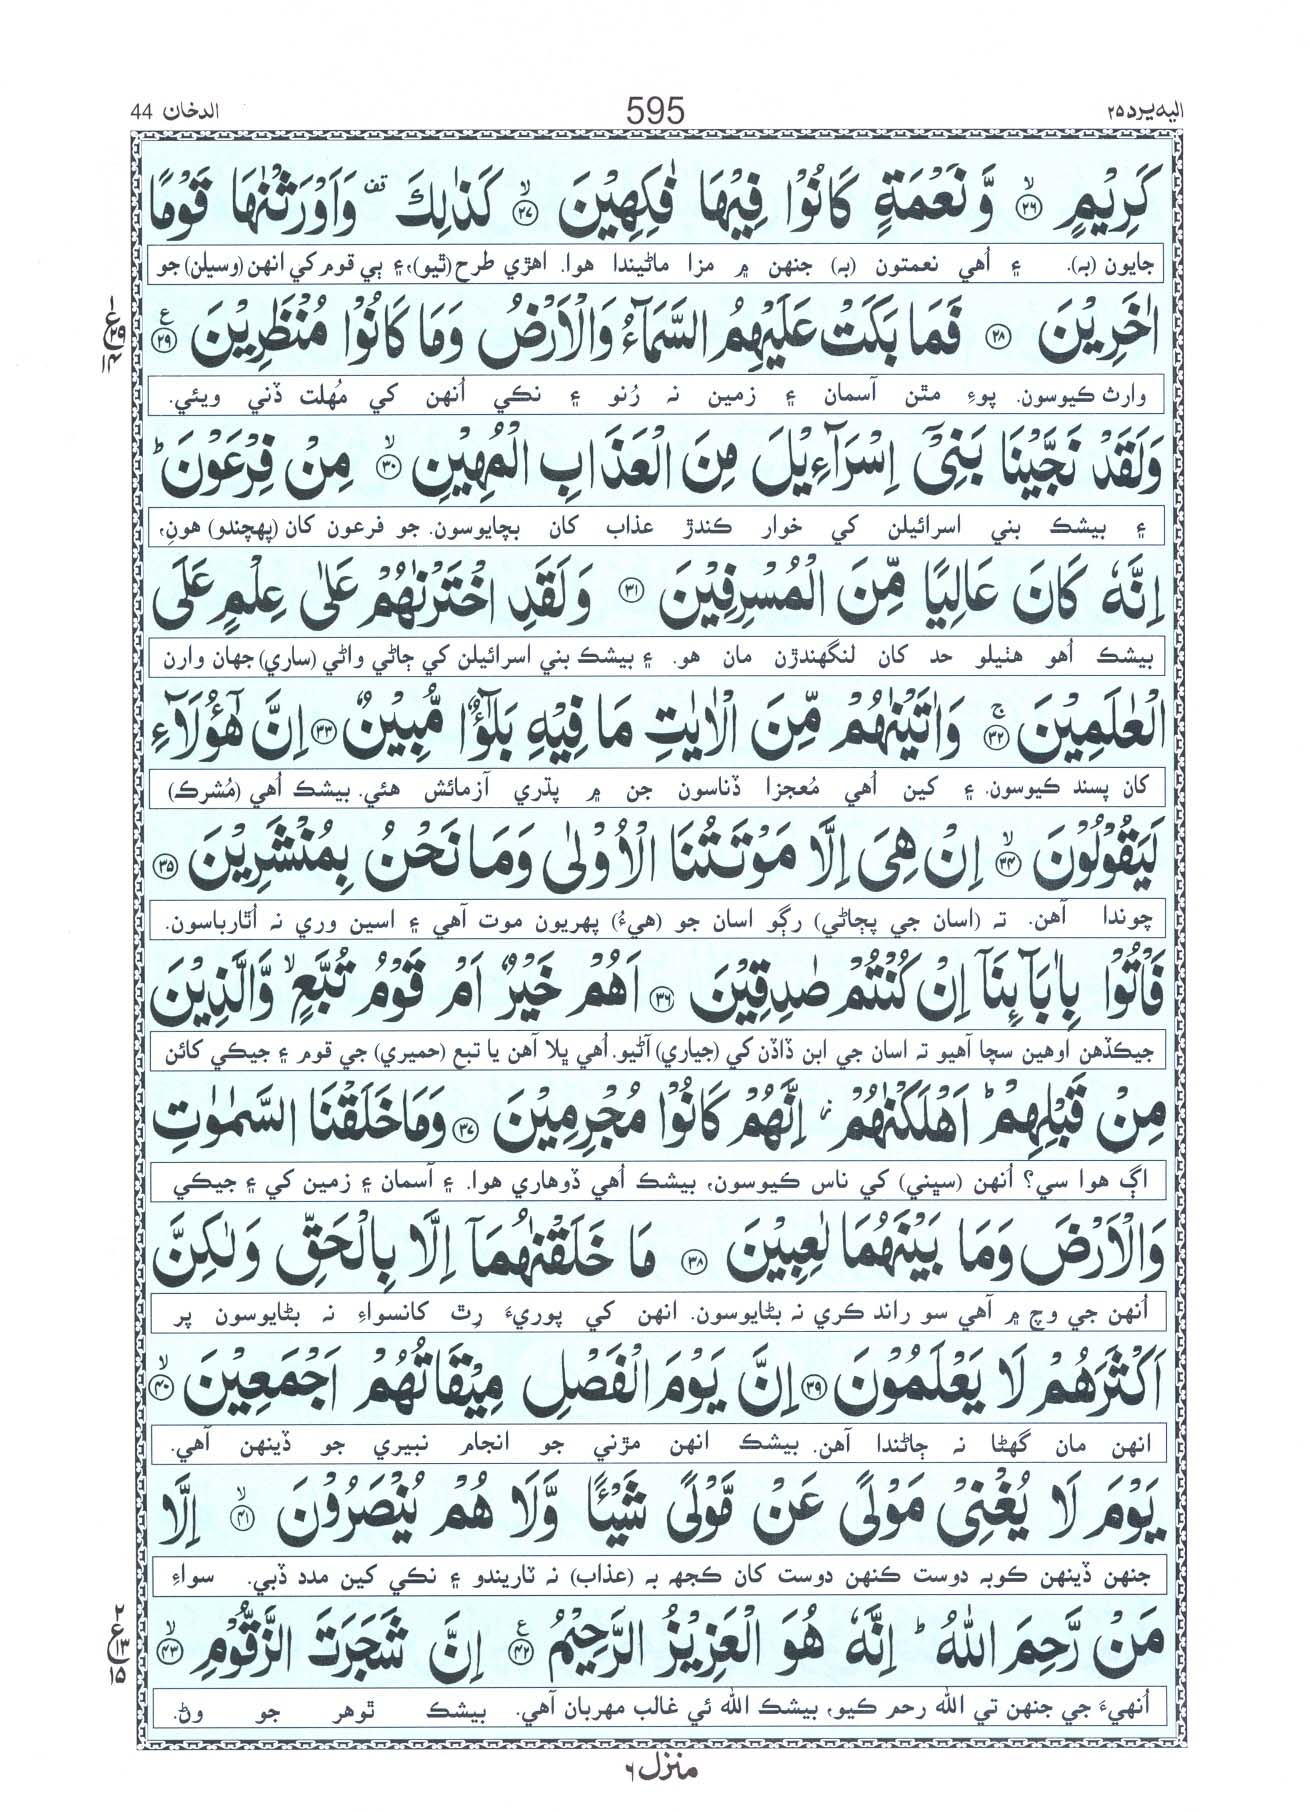 اليه يرد ٢٥ 595 الدخان 44
كَرِيْمٍ ۙ‏﴿۲۶﴾ وَّ نَعْمَةٍ كَانُوْا فِيْهَا فٰكِهِيْنَ ۙ‏﴿۲۷﴾ كَذٰلِكَ ۫ قف وَ اَوْرَثْنٰهَا قَوْمًا
جايون (به). ۽ اُهي نعمتون (به) جنهن ۾ مزا ماڻيندا هوا. اهڙي طرح (ٿيو)، ۽ ٻي قوم کي انهن (وسيلن) جو
اٰخَرِيْنَ ﴿۲۸﴾ فَمَا بَكَتْ عَلَيْهِمُ السَّمَآءُ وَالْاَرْضُ وَمَا كَانُوْا مُنْظَرِيْنَ ﴿۲۹﴾ ع
١ ع ٢٩ ١٤
وارث ڪيوسون. پوءِ مٿن آسمان ۽ زمين نہ رُنو ۽ نڪي اُنهن کي مُهلت ڏني ويئي.
وَلَقَدْ نَجَّيْنَا بَنِيْۤ اِسْرَآءِيْلَ مِنَ الْعَذَابِ الْمُهِيْنِ ۙ﴿۳۰﴾ مِنْ فِرْعَوْنَ ؕ
۽ بيشڪ بني اسرائيلن کي خوار ڪندڙ عذاب کان بچايوسون. جو فرعون کان (پهچندو) هون،
اِنَّهٗ كَانَ عَالِيًا مِّنَ الْمُسْرِفِيْنَ ﴿۳۱﴾ وَلَقَدِ اخْتَرْنٰهُمْ عَلٰى عِلْمٍ عَلَى
بيشڪ اُهو هٺيلو حد کان لنگهندڙن مان هو. ۽ بيشڪ بني اسرائيلن کي ڄاڻي واڻي (ساري) جهان وارن
الْعٰلَمِيْنَ ۚ﴿۳۲﴾ وَاٰتَيْنٰهُمْ مِّنَ الْاٰيٰتِ مَا فِيْهِ بَلٰٓؤٌا مُّبِيْنٌ ﴿۳۳﴾ اِنَّ هٰٓؤُلَآءِ
کان پسند ڪيوسون. ۽ کين اُهي مُعجزا ڏناسون جن ۾ پڌري آزمائش هئي. بيشڪ اُهي (مُشرڪ)
لَيَقُوْلُوْنَ ۙ﴿۳۴﴾ اِنْ هِيَ اِلَّا مَوْتَتُنَا الْاُوْلٰى وَمَا نَحْنُ بِمُنْشَرِيْنَ ﴿۳۵﴾
چوندا آهن. تہ (اسان جي پڄاڻي) رڳو اسان جو (هيءُ) پهريون موت آهي ۽ اسين وري نہ اُٿارباسون.
فَاْتُوْا بِاٰبَآئِنَاۤ اِنْ كُنْتُمْ صٰدِقِيْنَ ﴿۳۶﴾ اَهُمْ خَيْرٌ اَمْ قَوْمُ تُبَّعٍ ۙ وَّالَّذِيْنَ
جيڪڏهن اوهين سچا آهيو تہ اسان جي ابن ڏاڏن کي (جياري) آڻيو. اُهي ڀلا آهن يا تبع (حميري) جي قوم ۽ جيڪي کائن
مِنْ قَبْلِهِمْ ؕ اَهْلَكْنٰهُمْ ۫ ز اِنَّهُمْ كَانُوْا مُجْرِمِيْنَ ﴿۳۷﴾ وَمَا خَلَقْنَا السَّمٰوٰتِ
اڳ هوا سي؟ اُنهن (سڀني) کي ناس ڪيوسون، بيشڪ اُهي ڏوهاري هوا. ۽ آسمان ۽ زمين کي ۽ جيڪي
وَالْاَرْضَ وَمَا بَيْنَهُمَا لٰعِبِيْنَ ﴿۳۸﴾ مَا خَلَقْنٰهُمَاۤ اِلَّا بِالْحَقِّ وَلٰكِنَّ
اُنهن جي وچ ۾ آهي سو راند ڪري نہ بڻايوسون. انهن کي پوريءَ رِٿ کانسواءِ نہ بڻايوسون پر
اَكْثَرَهُمْ لَا يَعْلَمُوْنَ ﴿۳۹﴾ اِنَّ يَوْمَ الْفَصْلِ مِيْقَاتُهُمْ اَجْمَعِيْنَ ۙ﴿۴۰﴾
انهن مان گهڻا نہ ڄاڻندا آهن. بيشڪ انهن مڙني جو انجام نبيري جو ڏينهن آهي.
يَوْمَ لَا يُغْنِيْ مَوْلًى عَنْ مَّوْلًى شَيْـًٔا وَّلَا هُمْ يُنْصَرُوْنَ ۙ﴿۴۱﴾ اِلَّا
جنهن ڏينهن ڪوبہ دوست ڪنهن دوست کان ڪجهہ بہ (عذاب) نہ ٽاريندو ۽ نڪي کين مدد ڏبي. سواءِ
مَنْ رَّحِمَ اللّٰهُ ؕ اِنَّهٗ هُوَ الْعَزِيْزُ الرَّحِيْمُ ﴿۴۲﴾ ع اِنَّ شَجَرَتَ الزَّقُّوْمِ ۙ﴿۴۳﴾
٢ ع ١٣ ١٥
اُنهيءَ جي جنهن تي الله رحم ڪيو، بيشڪ الله ئي غالب مهربان آهي. بيشڪ ٿوهر جو وڻ.
منزل ٦